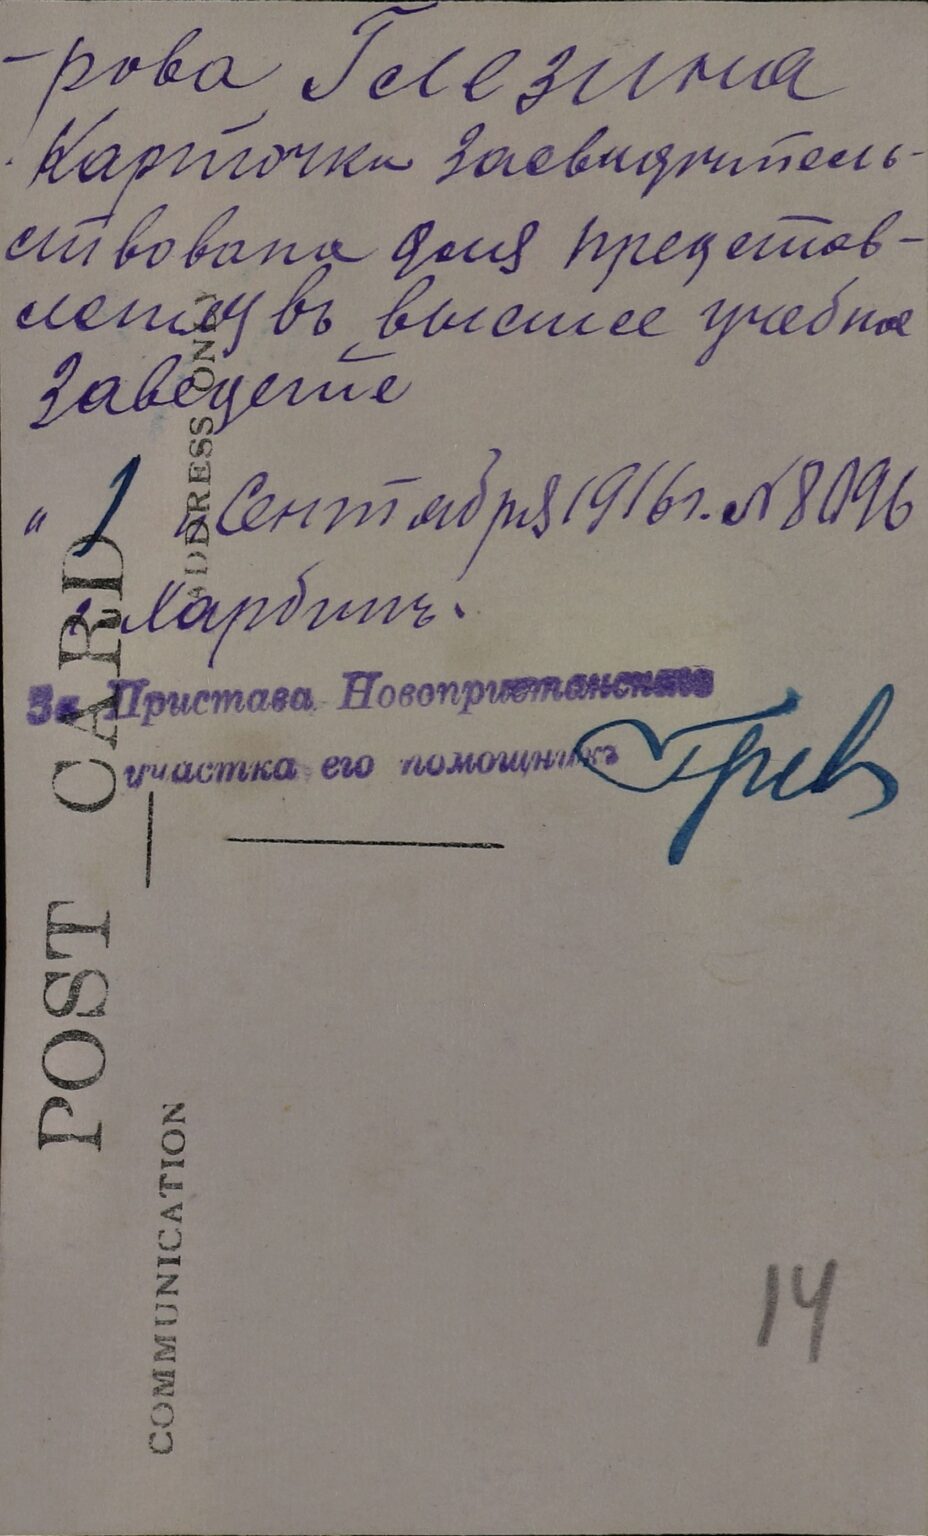 -рова Глезина
Карточка засвидѣтель-
ствована для представ-
ленія въ высшее учебное
заведеніе
" 1 " Сентября 1916 г. № 8096
г. Харбинъ.
За Пристава Новопристанскаго
участка его помощникъ
POST CARD
ADDRESS ONLY
COMMUNICATION
14